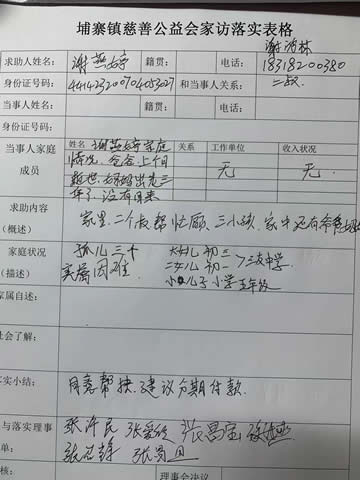 埔寨镇慈善公益会家访落实表格
求助人姓名： 谢燕婷 籍贯： 电话： 谢治林 18318200380
身份证号码： 和当事人关系： 二叔
当事人姓名： 籍贯： 电话：
身份证号码：
当事人家庭成员 姓名 谢燕婷家庭 关系 工作单位 收入状况
情况，爸爸上个月 无 无
去世，妈妈出走三
年了，没有回来
求助内容（概述） 家里二个叔帮忙顾三小孩，家中还有爷爷奶奶
家庭状况（描述） 孤儿三个 大女儿初三
实属困难 二女儿初一 三友中学
小儿子小学五年级
家属自述：
社会了解：
落实小结： 同意帮扶，建议分期付款.
与落实理事
单：
核： 理事会决议